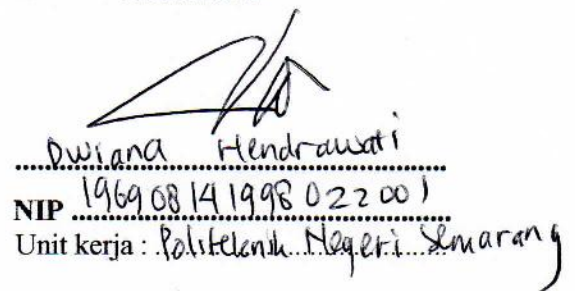 Dwiana Hendrawati
NIP 19690814 1998 02 2 001
Unit kerja : Politeknik Negeri Semarang